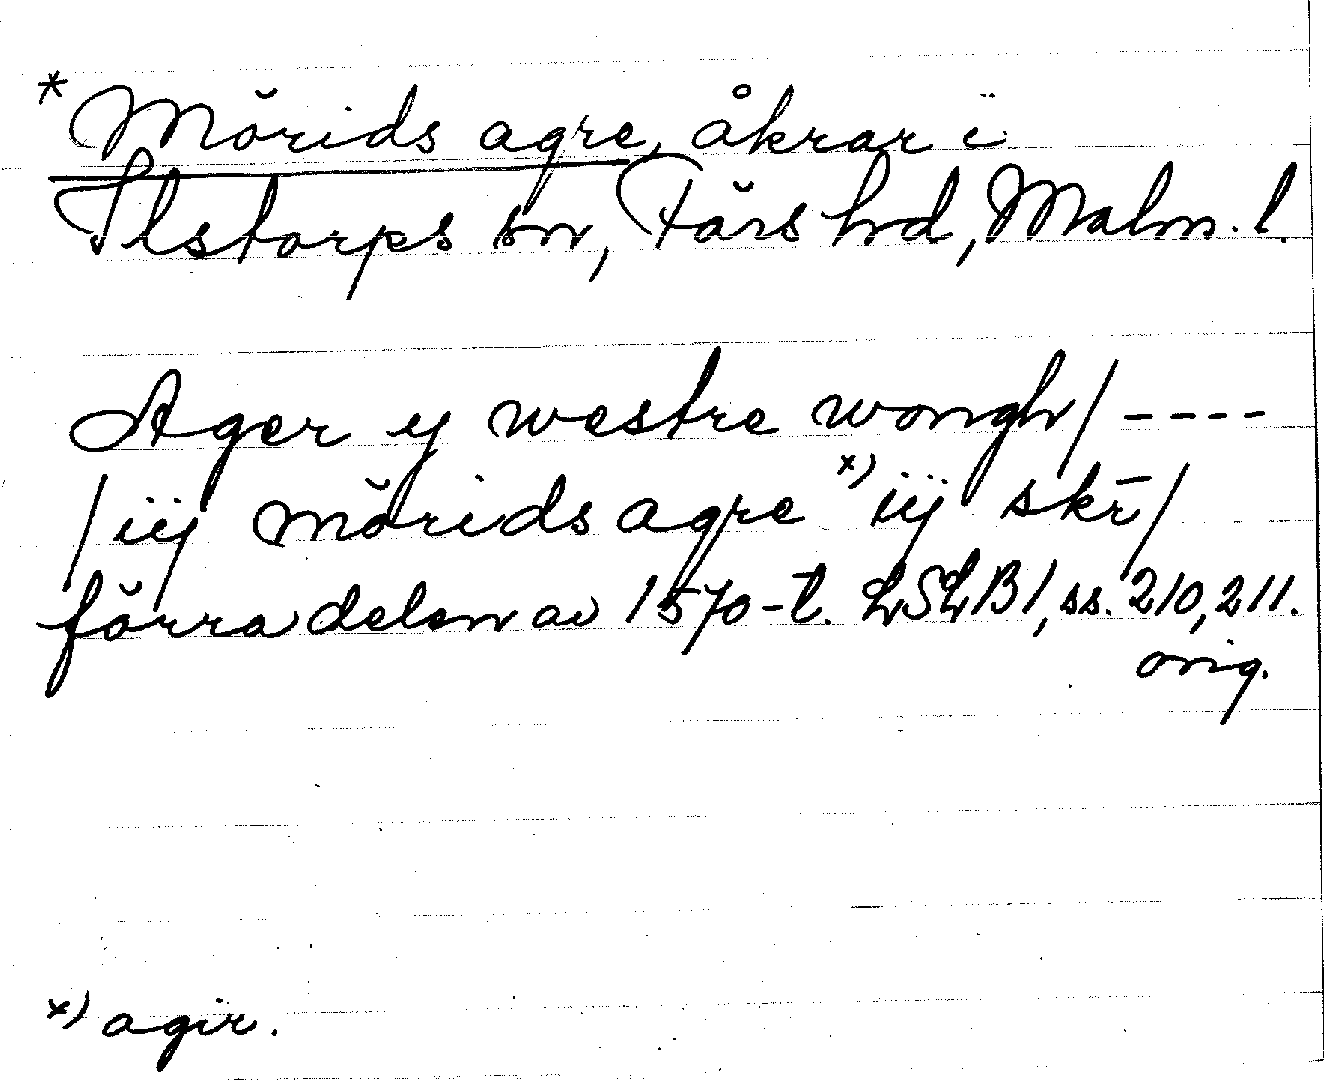 * Mörids agre, åkrar i
Ilstorps sn, Färs hd, Malm. l.
Ager y westre wongh/ ----
/iij mörids agre x) iij skī/
förra delen av 1570-t. LSLB1, ss. 210, 211.
orig.
x) agir.